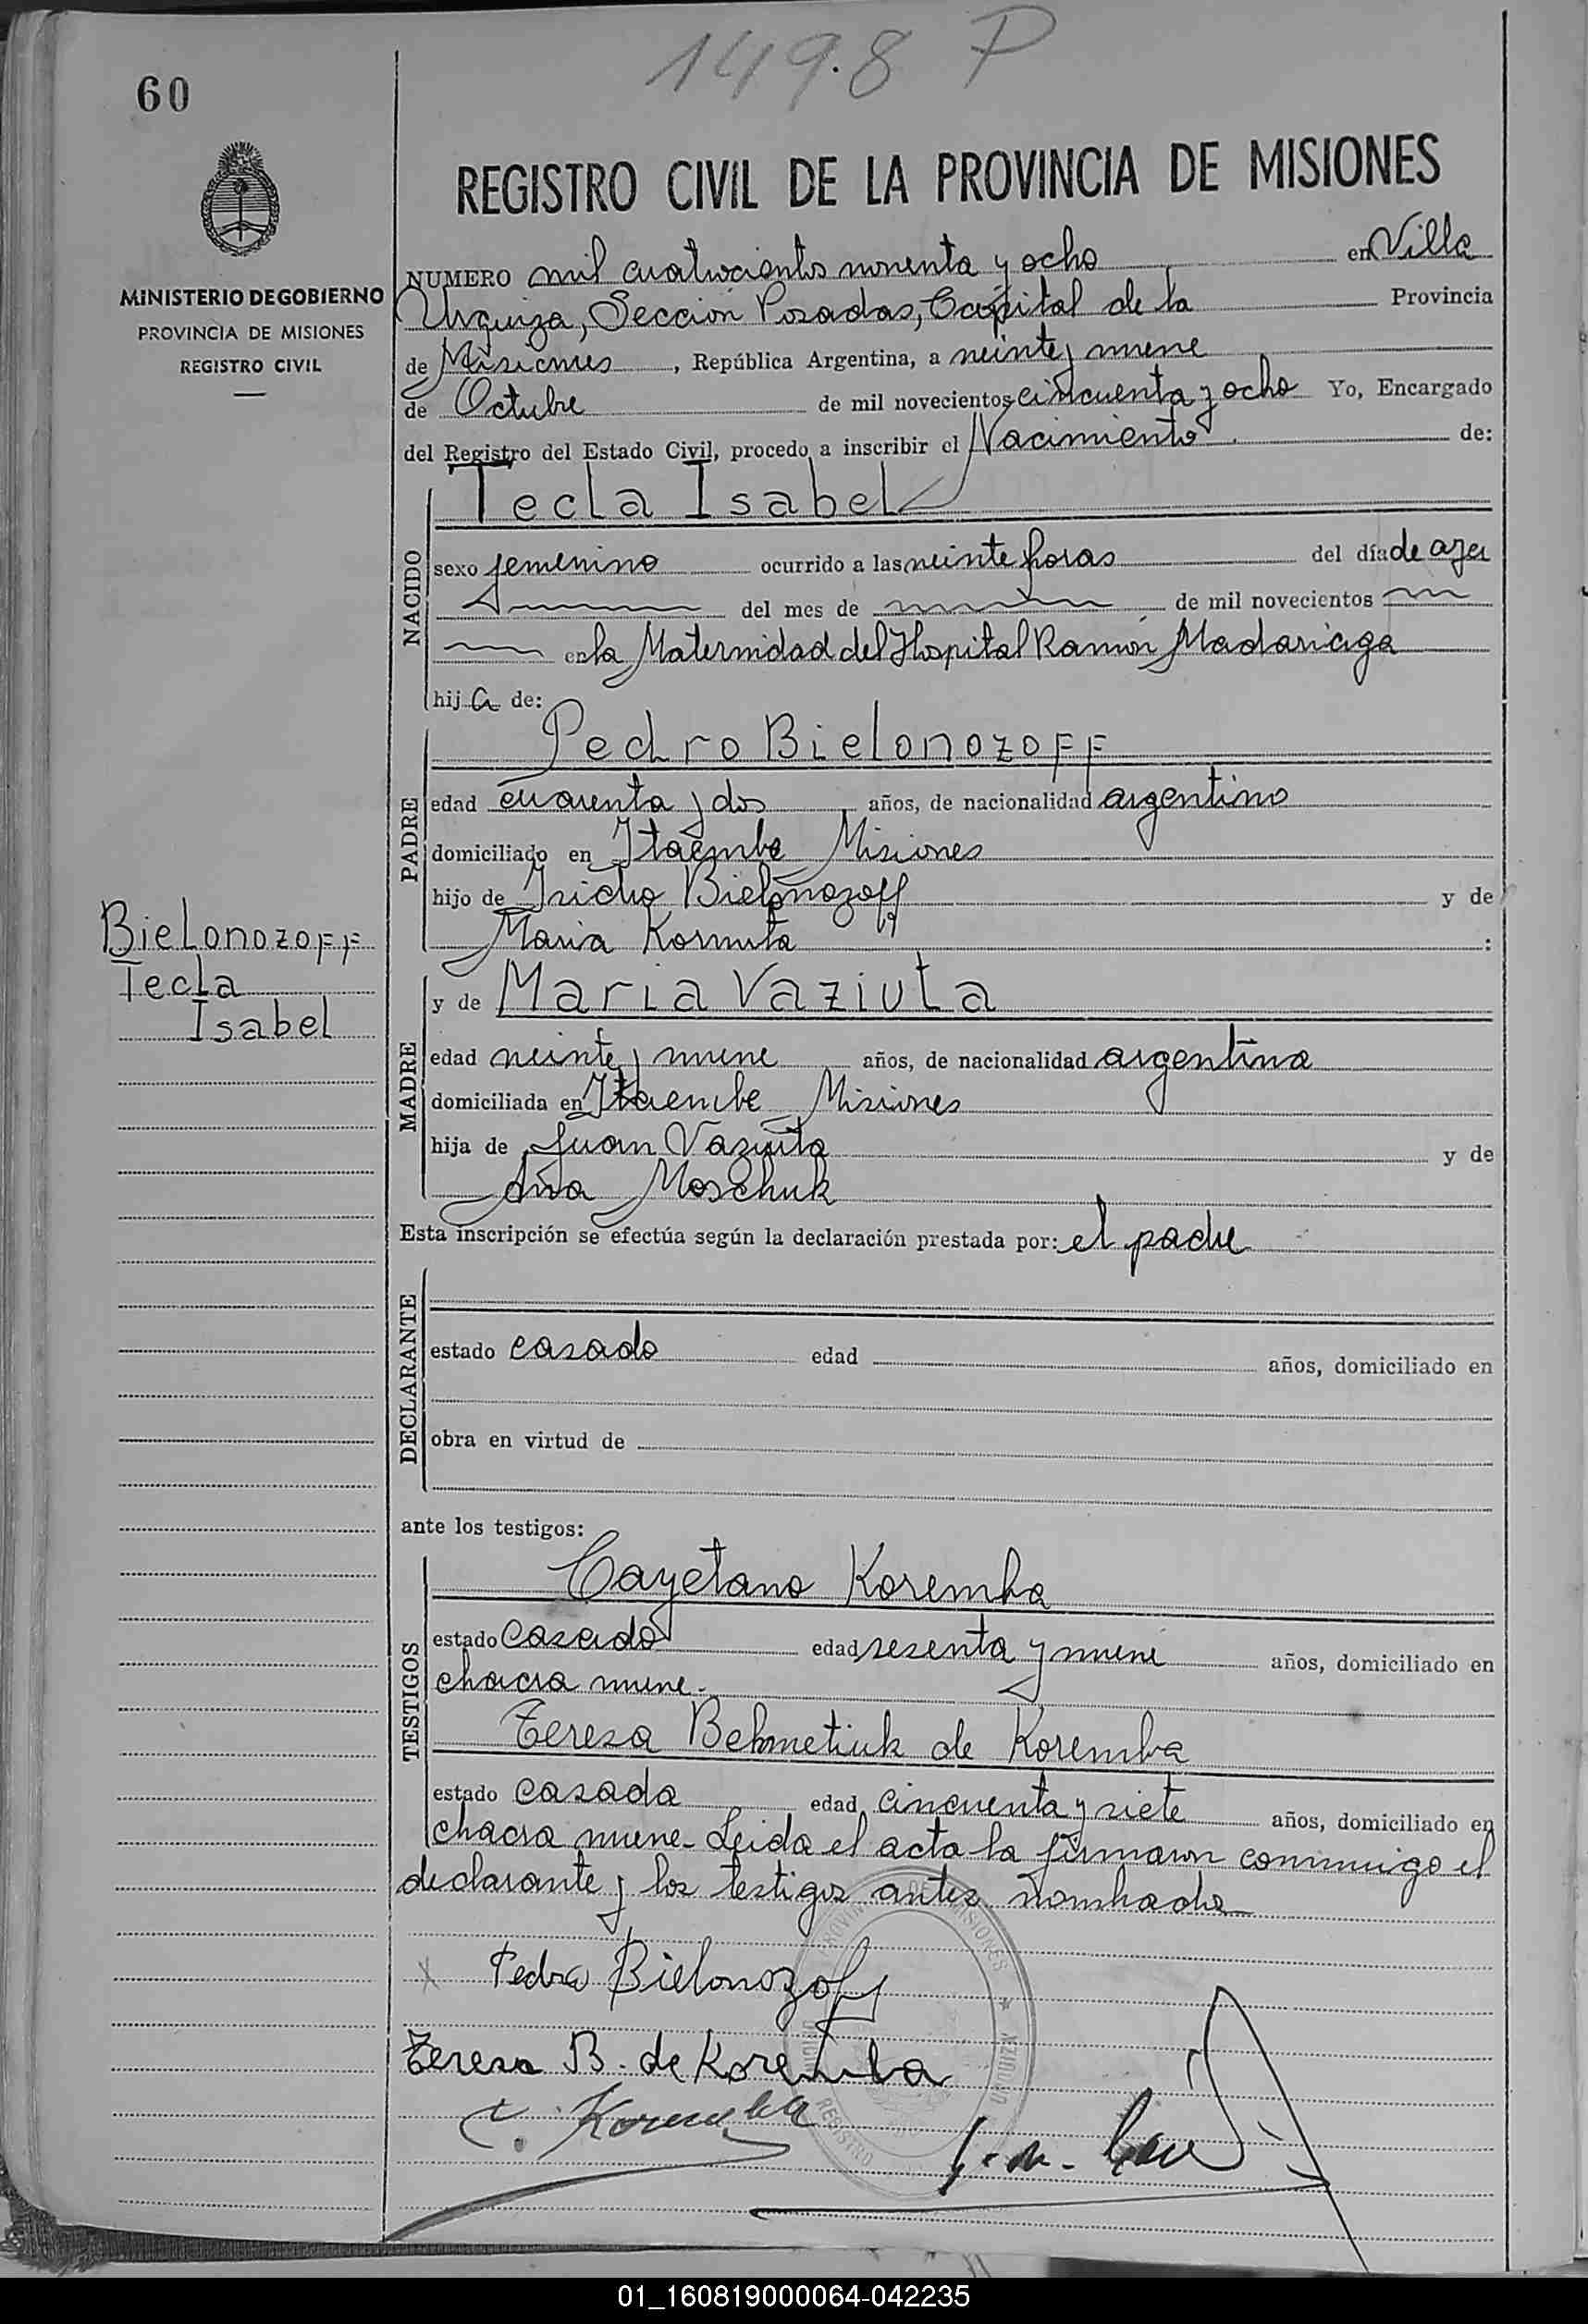 149.8 P
60
MINISTERIO DE GOBIERNO
PROVINCIA DE MISIONES
REGISTRO CIVIL
REGISTRO CIVIL DE LA PROVINCIA DE MISIONES
NUMERO mil cuatrocientos noventa y ocho en Villa
Urquiza, Sección Posadas, Capital de la Provincia
de Misiones, República Argentina, a veinte y nueve
de Octubre de mil novecientos cincuenta y ocho Yo, Encargado
del Registro del Estado Civil, procedo a inscribir el Nacimiento de:
NACIDO
Tecla Isabel
sexo femenino ocurrido a las veinte horas del día de ayer
del mes de de mil novecientos
en la Maternidad del Hospital Ramón Madariaga
hija de:
PADRE
Pedro Bielonozoff
edad cuarenta y dos años, de nacionalidad argentino
domiciliado en Itaembe Misiones
hijo de Bielonozoff y de
Maria Kornuta :
Bielonozoff
Tecla
Isabel
MADRE
y de Maria Vaziuta
edad veinte y nueve años, de nacionalidad argentina
domiciliada en Itaembe Misiones
hija de Juan Vaziuta y de
Ana Moschuk
Esta inscripción se efectúa según la declaración prestada por: el padre
DECLARANTE
estado casado edad años, domiciliado en
obra en virtud de
ante los testigos:
TESTIGOS
Cayetano Koremba
estado casado edad sesenta y nueve años, domiciliado en
chacra nueve.
Teresa Behmetiuk de Koremba
estado casada edad cincuenta y siete años, domiciliado en
chacra nueve- Leida el acta la firmaron conmigo el
declarante y los testigos antes nombrados
Pedro Bielonozoff
Teresa B. de Koremba
C. Koremba
01_160819000064-042235